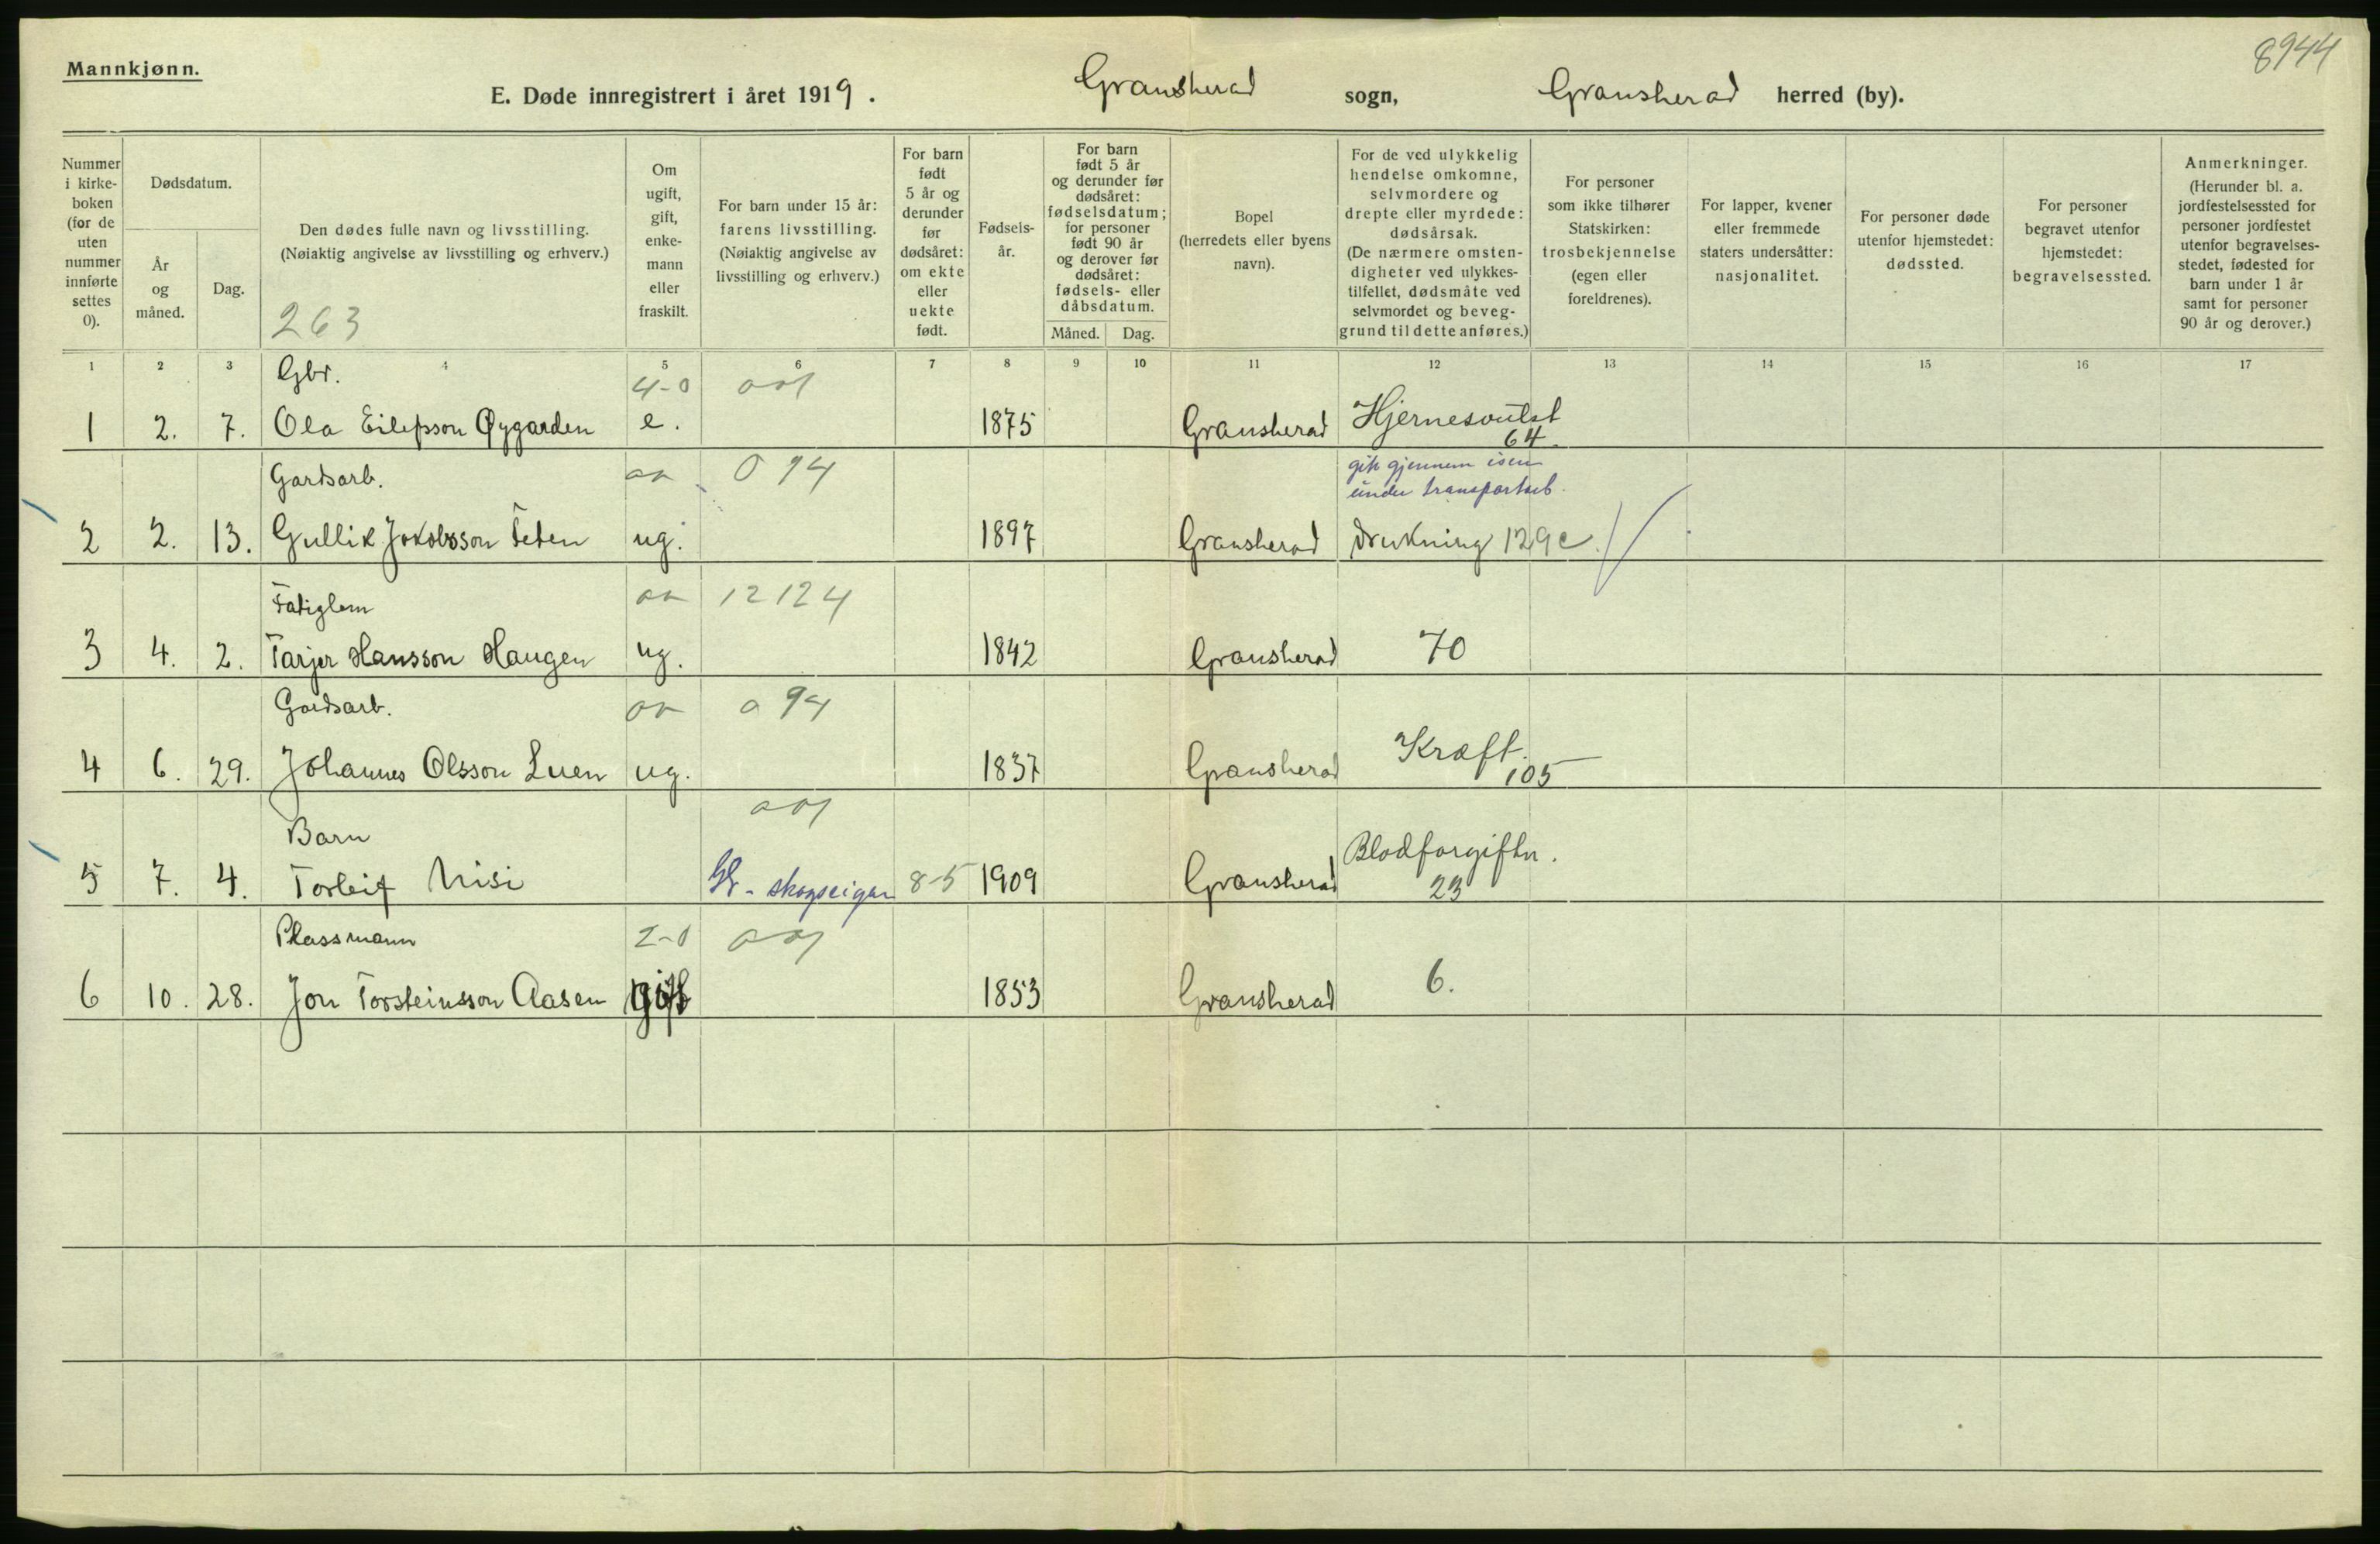 8944
Mannkjønn.
E. Døde innregistrert i året 1919. Gransherad sogn, Gransherad herred (by).
Nummer i kirke-boken (for de uten nummer innførte settes 0).
Dødsdatum.
År og måned.
Dag.
Den dødes fulle navn og livsstilling.
(Nøiaktig angivelse av livsstilling og erhverv.)
263
Om ugift, gift, enke-mann eller fraskilt.
For barn under 15 år: farens livsstilling. (Nøiaktig angivelse av livsstilling og erhverv.)
For barn født 5 år og derunder før dødsåret: om ekte eller uekte født.
Fødsels-år.
For barn født 5 år og derunder før dødsåret: fødselsdatum; for personer født 90 år og derover før dødsåret: fødsels- eller dåbsdatum.
Måned. Dag.
Bopel (herredets eller byens navn).
For de ved ulykkelig hendelse omkomne, selvmordere og drepte eller myrdede: dødsårsak. (De nærmere omsten-digheter ved ulykkes-tilfellet, dødsmåte ved selvmordet og beveg-grund til dette anføres.)
For personer som ikke tilhører Statskirken: trosbekjennelse (egen eller foreldrenes).
For lapper, kvener eller fremmede staters undersåtter: nasjonalitet.
For personer døde utenfor hjemstedet: dødssted.
For personer begravet utenfor hjemstedet: begravelsessted.
Anmerkninger. (Herunder bl. a. jordfestelsessted for personer jordfestet utenfor begravelses-stedet, fødested for barn under 1 år samt for personer 90 år og derover.)
1 2 3 4 5 6 7 8 9 10 11 12 13 14 15 16 17
Gbr. 4-0
1 2. 7. Ola Eilefsson Øygarden e. 1875 Gransherad Hjernesvulst
64
Gardsarb. 094 gik gjennem isen
under transportarb.
2 2. 13. Gullik Jokobsson Teten ug. 1897 Gransherad Drukning 129c
Fatiglem 12124
3 4. 2. Tarjer Hansson Haugen ug. 1842 Gransherad 70
Gardsarb. 094
4 6. 29. Johannes Olsson Luen ug. 1837 Gransherad Kræft.
105
Barn
5 7. 4. Torleif Nisi skogseigar 8-5 1909 Gransherad Blodforgiftn.
23
Plassmann 2-0
6 10. 28. Jon Torsteinsson Aasen gift 1853 Gransherad 6.